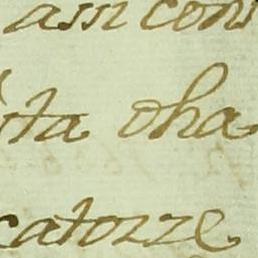 assi con
ta oha
catozze